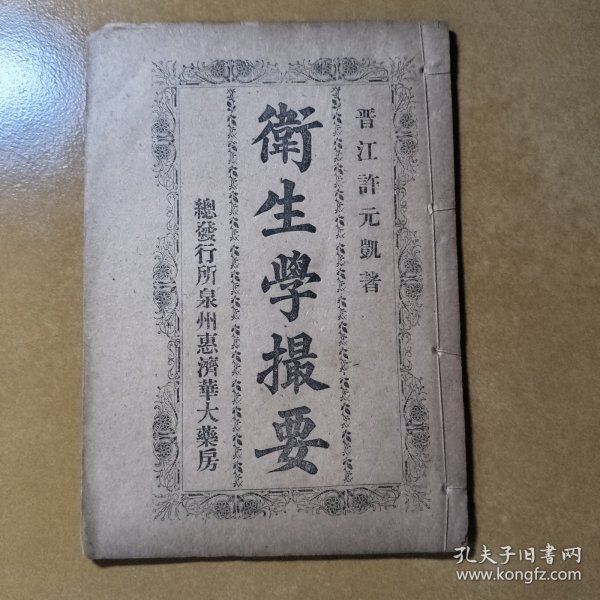 晋江許元凱著
衛生學撮要
總發行所泉州惠濟華大藥房
孔夫子旧书网
www.kongfz.com